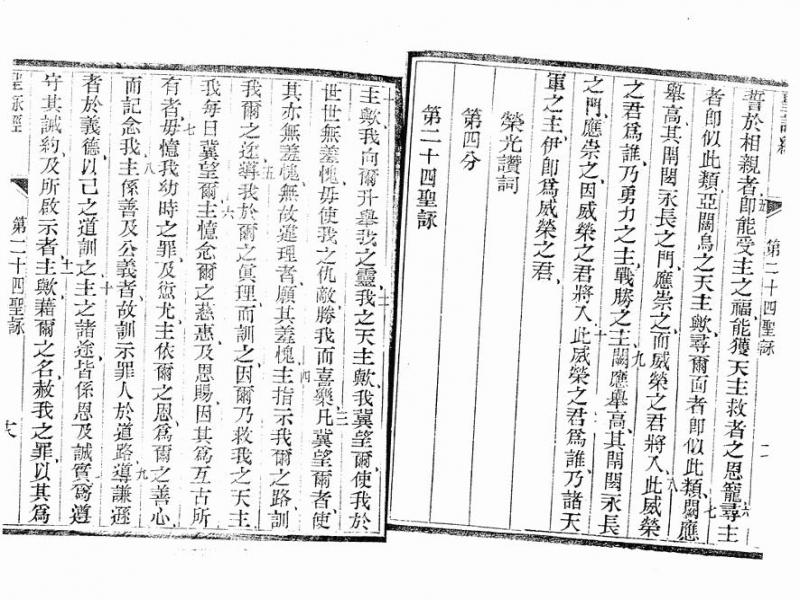 第二十四聖詠
二
誓於相親者卽能受主之福能獲天主救者之恩寵尋主
者卽似此類亞闊烏之天主歟尋爾面者卽似此類闊應
舉高其閈閎永長之門應崇之而威榮之君將入此威榮
之君爲誰乃勇力之主戰勝之主闊應舉高其閈閎永長
之門應崇之因威榮之君將入此威榮之君爲誰乃諸天
軍之主伊卽爲威榮之君
榮光讚詞
第四分
第二十四聖詠
主歟我向爾升舉我之靈我之天主歟我冀望爾使我於
世世無羞愧毋使我之仇敵勝我而喜樂凡冀望爾者使
其亦無羞愧無故違理者願其羞愧主指示我爾之路訓
我爾之途導我於爾之眞理而訓之因爾乃救我之天主
我每日冀望爾主憶念爾之慈惠及恩賜因其爲互古所
有者毋憶我幼時之罪及愆尤主依爾之恩爲爾之善心
而記念我主係善及公義者故訓示罪人於道路導謙遜
者於義德以己之道訓之主之諸途皆係恩及誠實爲遵
守其誡約及所啟示者主歟藉爾之名赦我之罪以其爲
聖詠經
第二十四聖詠